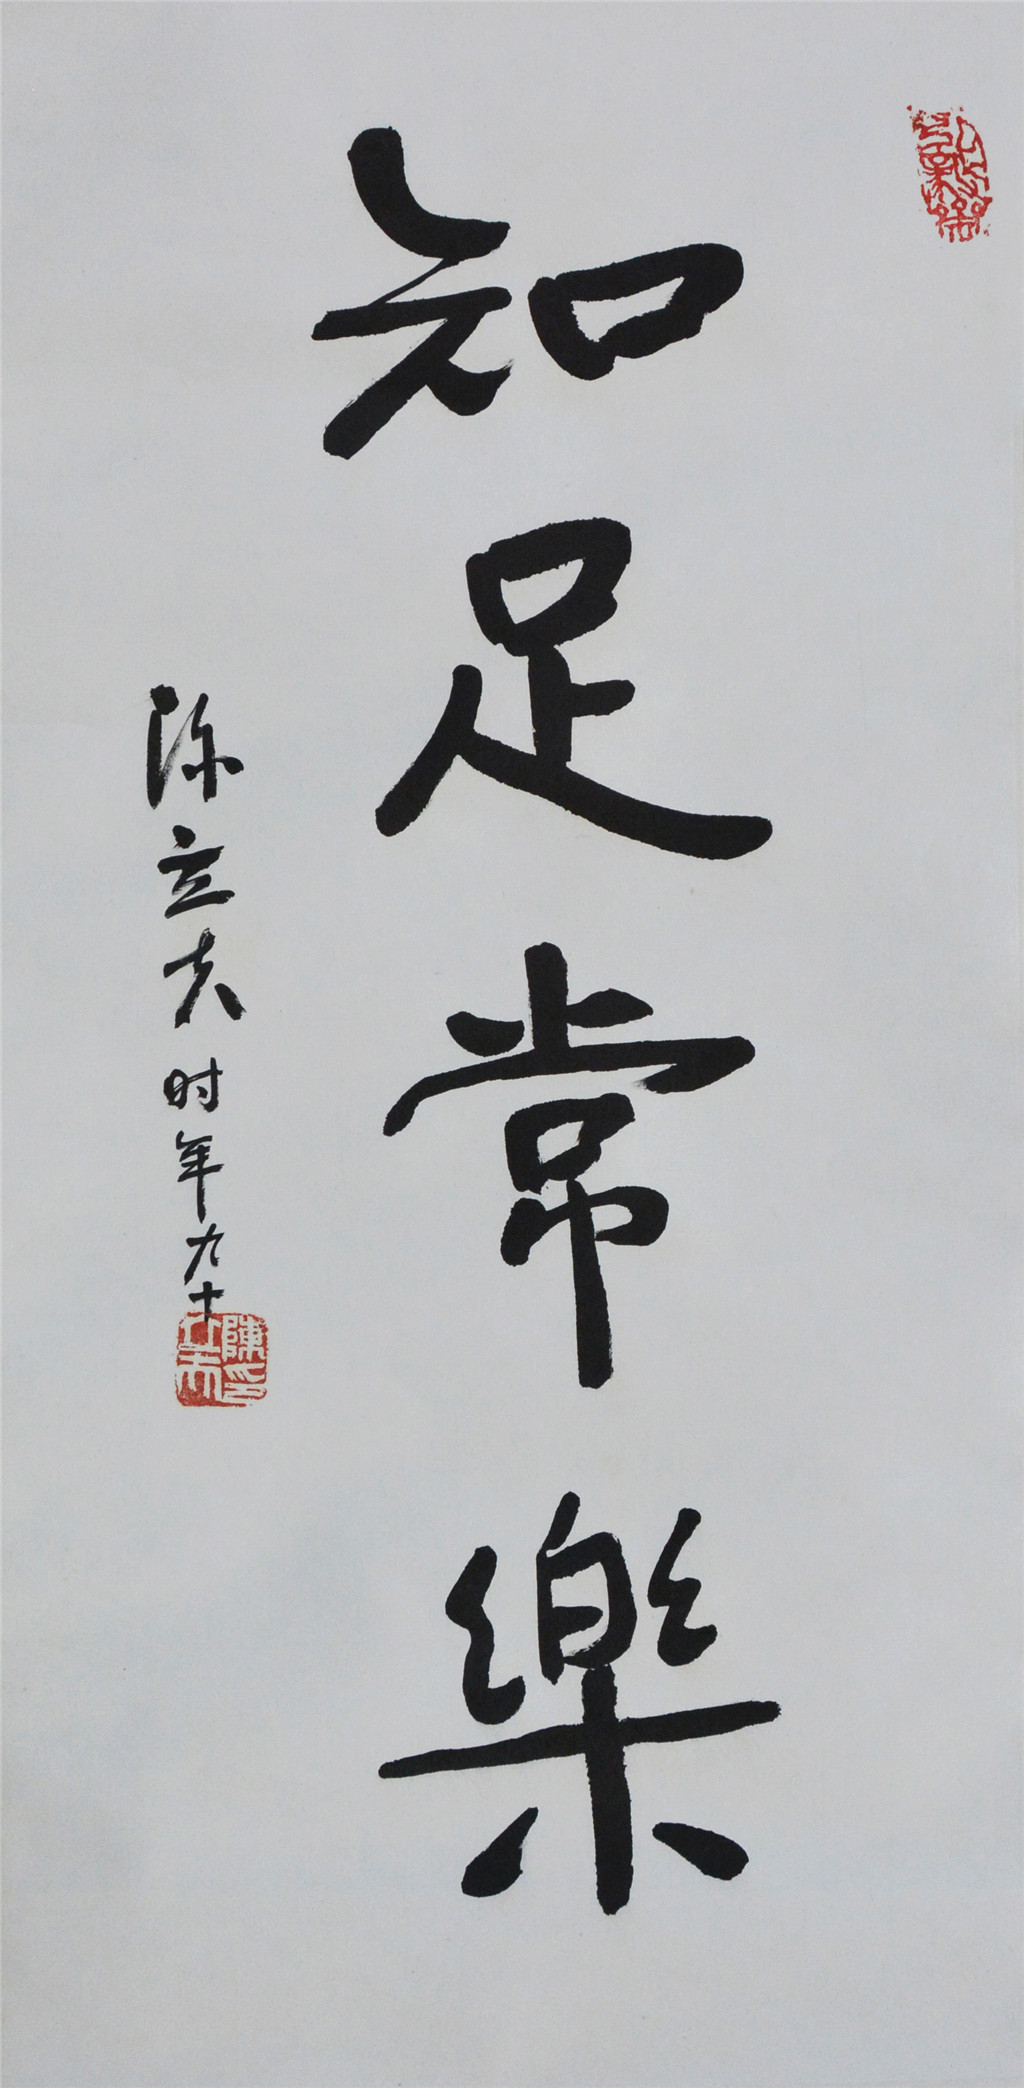 知足常樂
陈立夫时年九十
陳印立夫